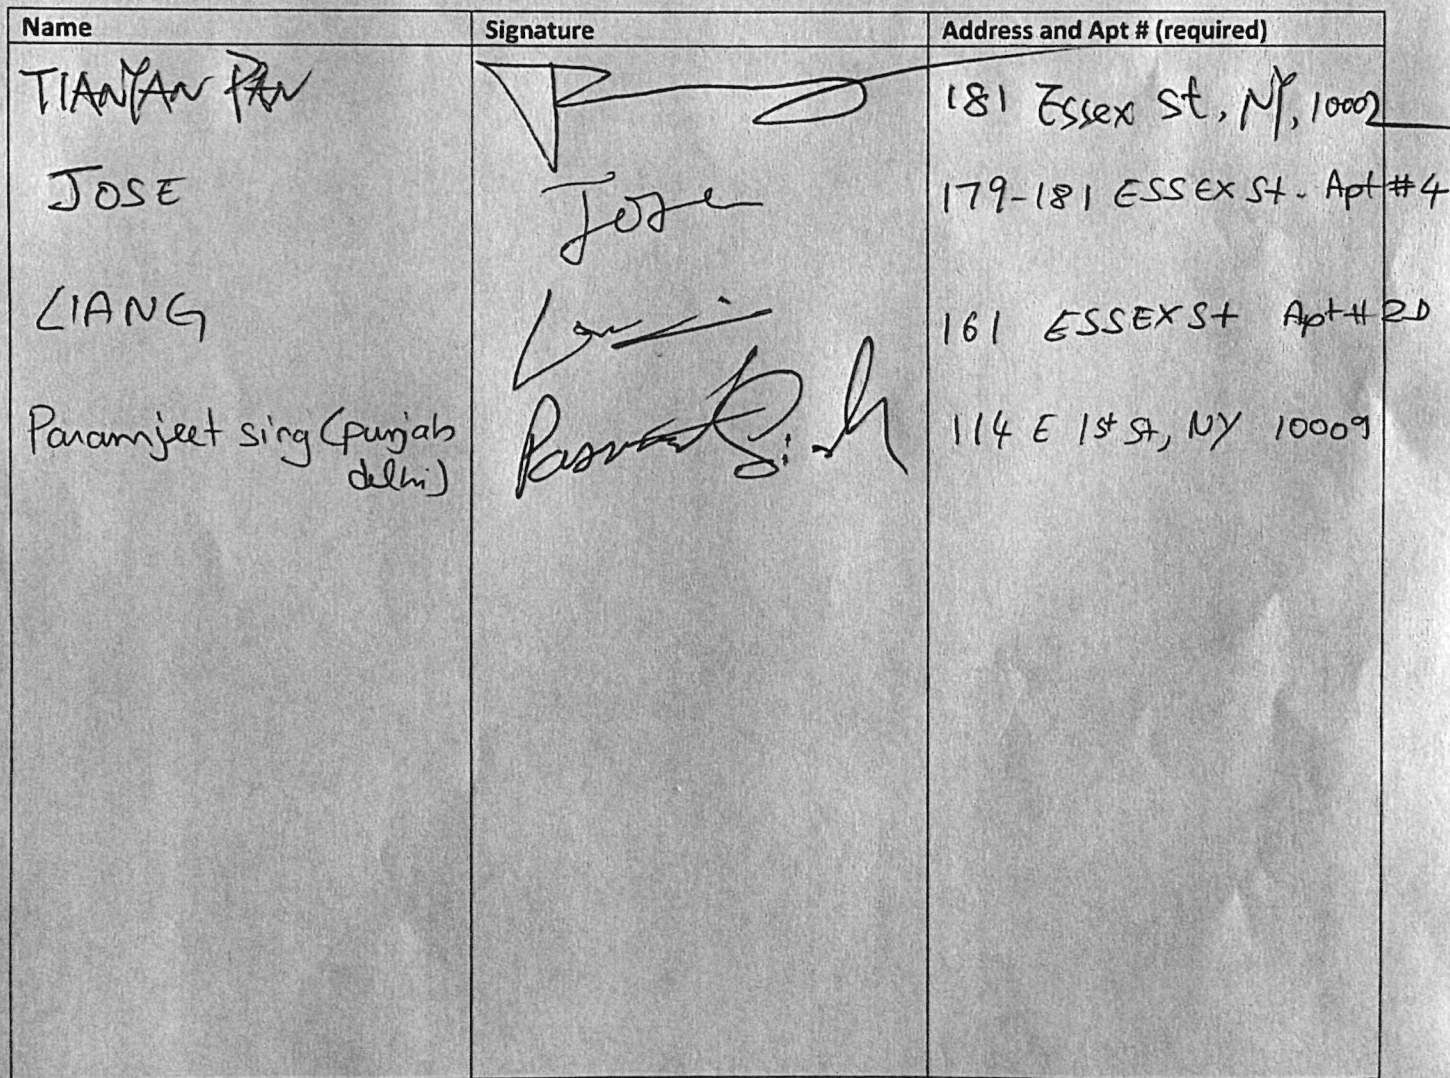 Name Signature Address and Apt # (required)
TIANYAN PAN 181 Essex St, NY, 10002
JOSE Jose 179-181 ESSEX St. Apt #4
LIANG 161 ESSEX St Apt # 2D
Paramjeet sing (punjab 114 E 1st St, NY 10009
delhi)